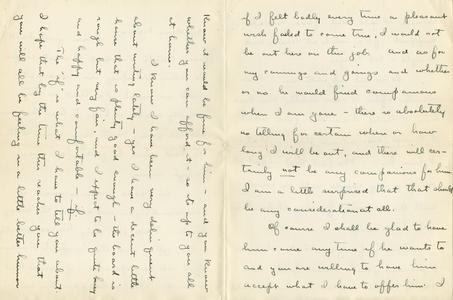 if I felt badly every time a pleasant
wish failed to come true, I would not
be out here on this job. And as for
my comings and goings and whether
or no he would find companions
when I am gone - there is absolutely
no telling for certain when or how
long I will be out, and there will cer-
tainly not be any companions for him
I am a little surprised that that should
be any consideration at all.
Of course I shall be glad to have
him come any time if he wants to
and you are willing to have him
accept what I have to offer him. I
know it would be fine for him - and you know
whether you can afford it - so its up to you all
at home.
I know I have been very delinquent
about writing lately - yes I have a decent little
home that is plenty good enough - the board is
rough but very fair, and I expect to be quite busy
and happy and comfortable - if
The "if" is what I have to tell you about.
I hope that by the time this reaches you that
you will all be feeling in a little better humor